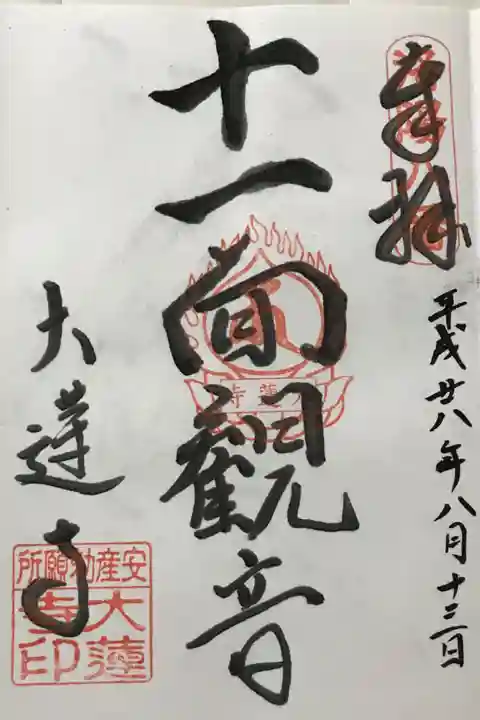 奉拝
平成廿八年八月十三日
十一面觀音
大蓮寺
大蓮寺
安産勅願所
大蓮寺印